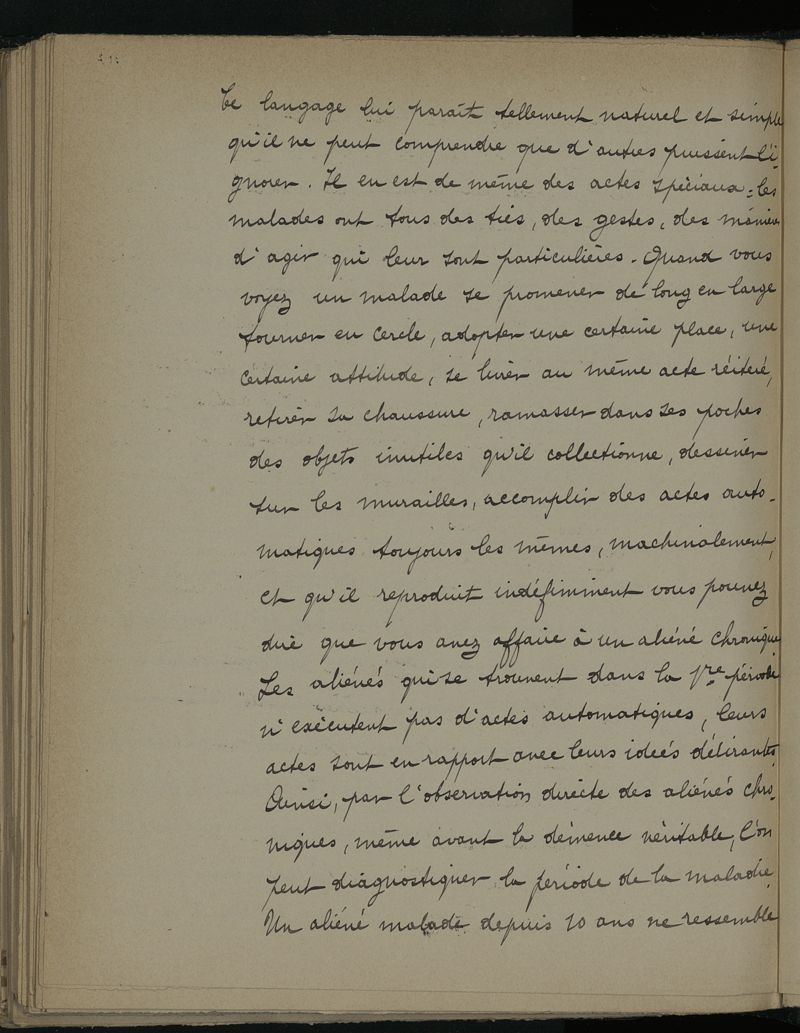 Ce langage lui paraît tellement naturel et simple
qu'il ne peut comprendre que d'autres puissent l'i-
gnorer. Il en est de même des actes spéciaux : les
malades ont tous des tics, des gestes, des manières
d'agir qui leur sont particulières. Quand vous
voyez un malade se promener de long en large
tourner en cercle, adopter une certaine place, une
certaine attitude, se livrer au même acte réitéré,
retirer sa chaussure, ramasser dans ses poches
des objets inutiles qu'il collectionne, dessiner
sur les murailles, accomplir des actes auto-
matiques toujours les mêmes, machinalement,
et qu'il reproduit indéfiniment vous pouvez
dire que vous avez affaire à un aliéné chronique
Les aliénés qui se trouvent dans la 1re période
n'exécutent pas d'actes automatiques, leurs
actes sont en rapport avec leurs idées délirantes.
Ainsi, par l'observation directe des aliénés chro-
niques, même avant la démence véritable, l'on
peut diagnostiquer la période de la maladie.
Un aliéné malade depuis 10 ans ne ressemble